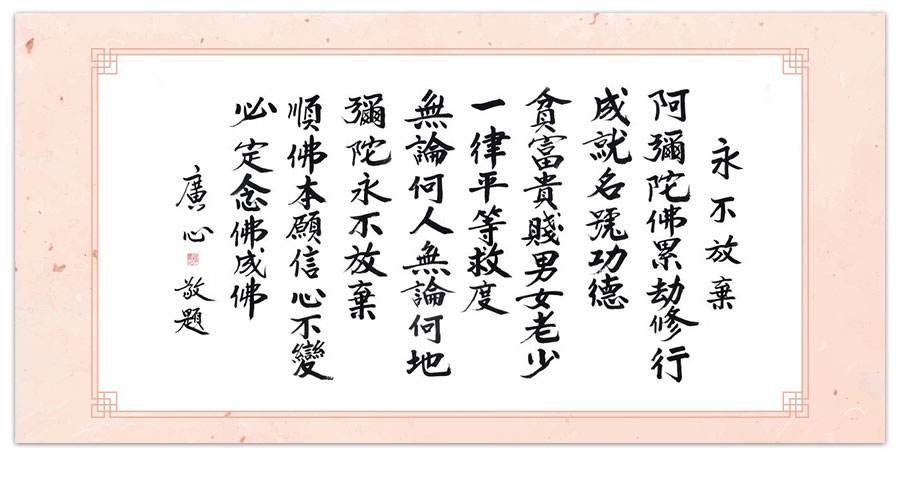 永不放棄
阿彌陀佛累劫修行
成就名號功德
貧富貴賤男女老少
一律平等救度
無論何人無論何地
彌陀永不放棄
順佛本願信心不變
必定念佛成佛
廣心敬題